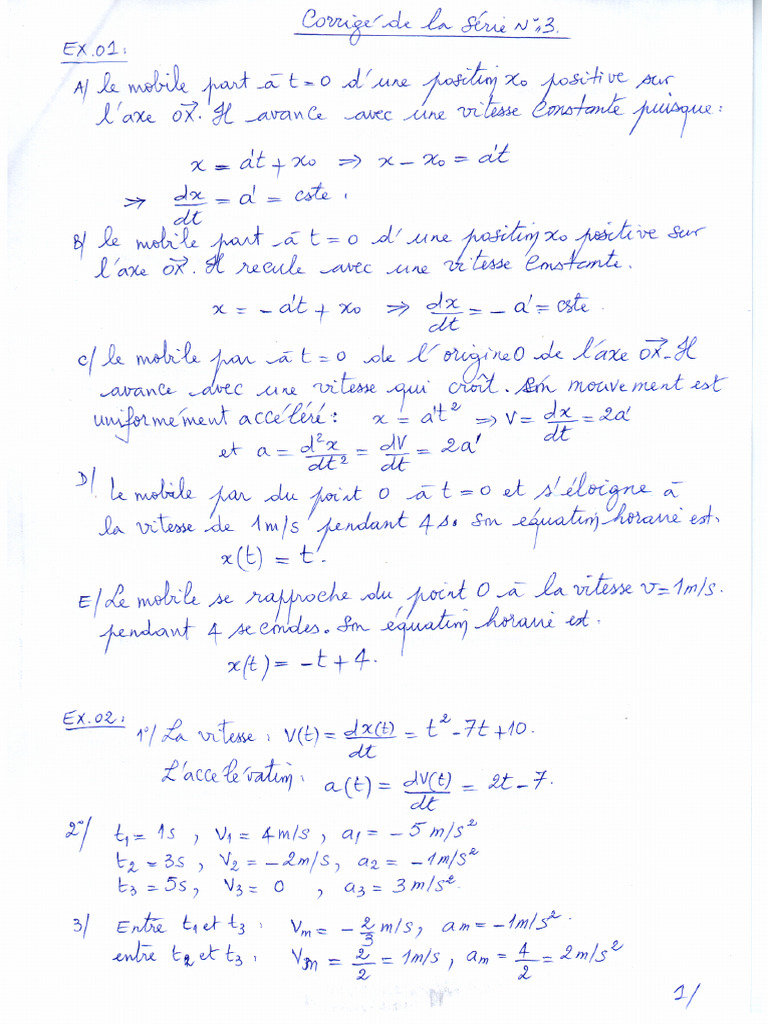 Corrigé de la série N°3.
EX.01:
A/ le mobile part à t=0 d'une position x₀ positive sur
l'axe OX⃗. Il avance avec une vitesse constante puisque:
x = a't + x₀ ⇒ x - x₀ = a't
⇒ dx/dt = a' = cste.
B/ le mobile part à t=0 d'une position x₀ positive sur
l'axe OX⃗. Il recule avec une vitesse constante.
x = -a't + x₀ ⇒ dx/dt = -a' = cste.
C/ le mobile par à t=0 de l'origine O de l'axe OX⃗. Il
avance avec une vitesse qui croît. Son mouvement est
uniformément accéléré: x = a't² ⇒ V = dx/dt = 2a'
et a = d²x/dt² = dV/dt = 2a'
D/ Le mobile par du point O à t=0 et s'éloigne à
la vitesse de 1m/s pendant 4s. Son équation horaire est.
x(t) = t.
E/ Le mobile se rapproche du point O à la vitesse v=1m/s.
pendant 4 secondes. Son équation horaire est.
x(t) = -t+4.
EX.02:
1°/ La vitesse: V(t) = dx(t)/dt = t²-7t+10.
L'accélération: a(t) = dV(t)/dt = 2t-7.
2°/ t₁=1s, V₁=4m/s, a₁=-5m/s²
t₂=3s, V₂=-2m/s, a₂=-1m/s²
t₃=5s, V₃=0, a₃=3m/s².
3/ Entre t₁ et t₃: Vm=-2/3 m/s, am=-1m/s².
entre t₂ et t₃: Vm=2/2=1m/s, am=4/2=2m/s²
1/